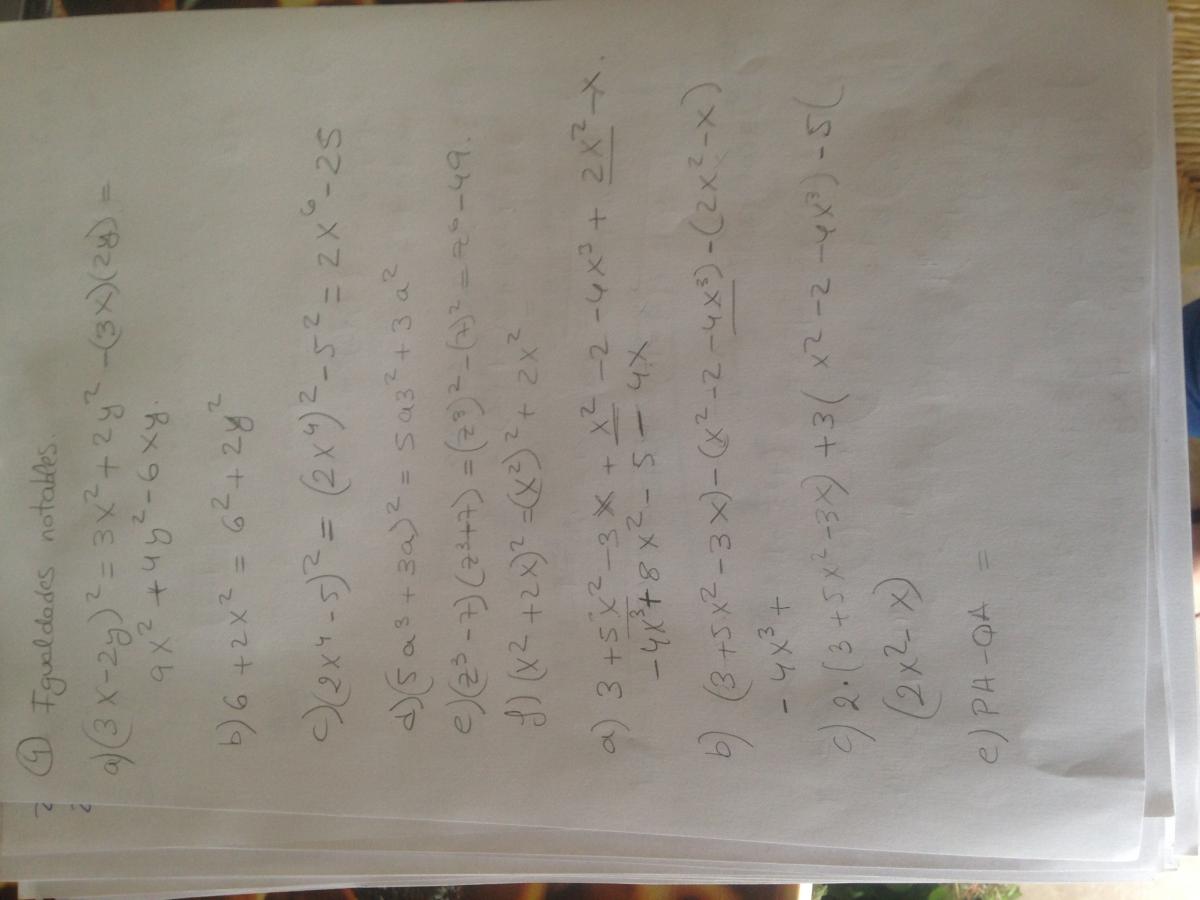 ④ Igualdades notables.
a)(3x-2y)² = 3x² + 2y² -(3x)(2y) =
9x² + 4y² - 6xy.
b) 6 + 2x² = 6² + 2y²
c)(2x⁴ - 5)² = (2x⁴)² - 5² = 2x⁶ - 25
d)(5a³ + 3a)² = 5a3² + 3a²
e)(z³ - 7)(z³+7) = (z³)² - (7)² = z⁶ - 49.
f)(x² + 2x)² = (x²)² + 2x²
a) 3 + 5x² - 3x + x² - 2 - 4x³ + 2x² - x.
- 4x³ + 8x² - 5 - 4x
b) (3 + 5x² - 3x) - (x² - 2 - 4x³) - (2x² - x)
- 4x³ +
c) 2·(3 + 5x² - 3x) + 3( x² - 2 - 4x³) - 5(
(2x² - x)
e) PA - QA =